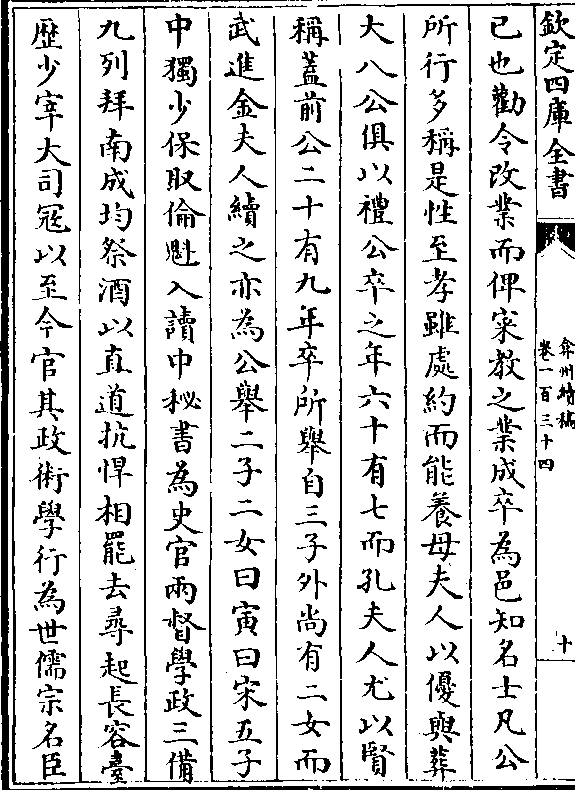 欽定四庫全書
弇州續稿
卷一百三十四
十
己也勸令改業而俾寀教之業成卒為邑知名士凡公
所行多稱是性至孝雖處約而能養母夫人以優與葬
大八公俱以禮公卒之年六十有七而孔夫人尤以賢
稱蓋前公二十有九年卒所舉自三子外尚有二女而
武進金夫人續之亦為公舉二子二女曰寅曰宋五子
中獨少保取倫魁入讀中秘書為史官兩督學政三備
九列拜南成均祭酒以直道抗悍相罷去尋起長容臺
歴少宰大司冦以至今官其政術學行為世儒宗名臣